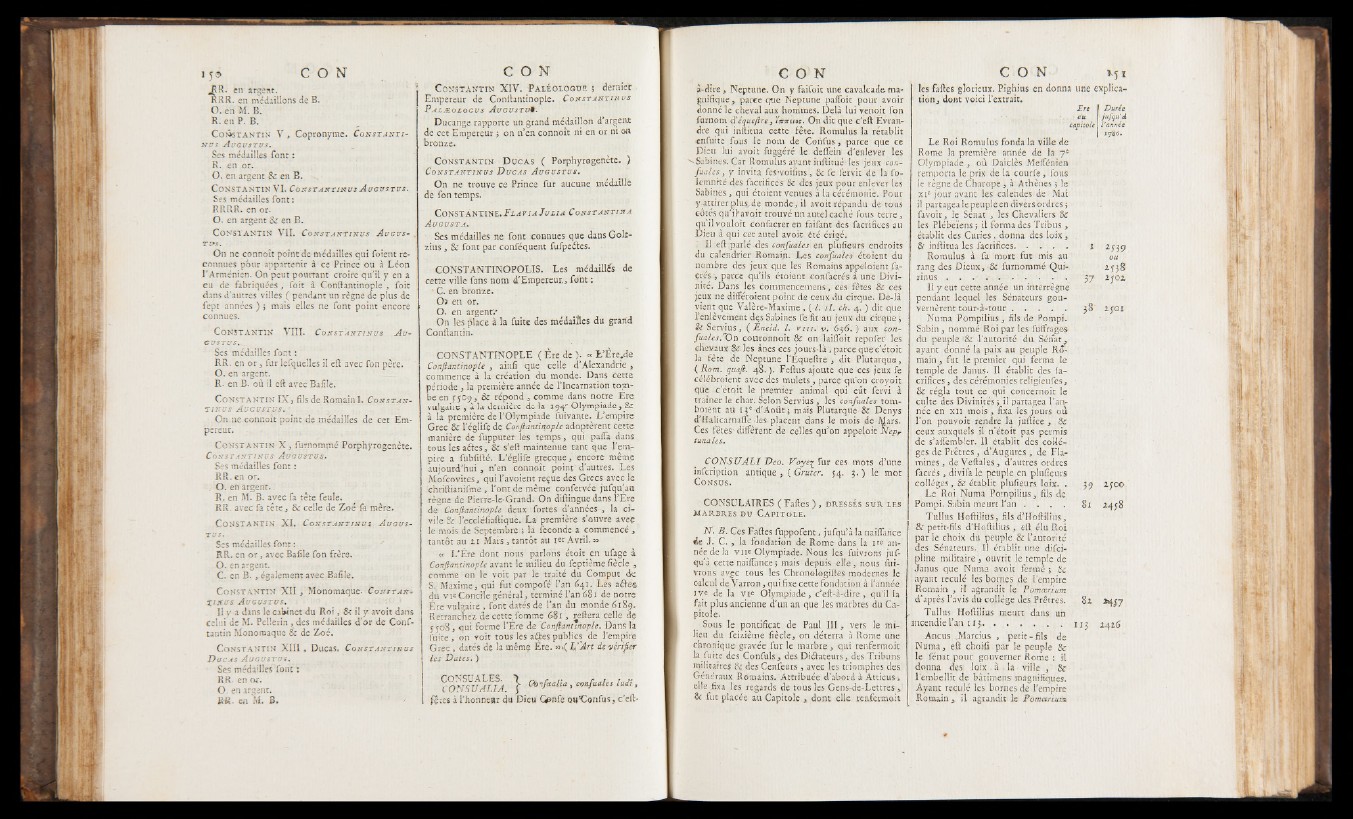 150 CON
RR. en argent.
RRR. en médaillons de B.
O. en M. B.
R. en P. B.
CONSTANTIN V, Copronyme. CONSTANTI-
NUS AUGUSTUS.
Ses médailles font :
R. en or.
O. en argent & en B.
CONSTANTIN VI. CONSTANTINUS AUGUSTUS.
Ses médailles font :
RRRR. en or.
O. en argent & en B.
CONSTANTIN VII. CONSTANTINUS AUGUS-
TUS.
On ne connoît point de médailles qui foient re-
connues pour appartenir à ce Prince ou à Léon
l'Arménien. On peut pourtant croire qu'il y en a
eu de fabriquées, foit à Conftantinople, foit
dans d'autres villes ( pendant un règne de plus de
fept années ) ; mais elles ne font point encore
connues.
CONSTANTIN VIII. CONSTANTINUS AU-
GUSTUS.
Ses médailles font :
RR. en or, fur lefquelles il eft avec fon père.
O. en argent.
R. en B. où il eft avec Bafile.
CONSTANTIN IX, fils de Romain I. CONSTAN-
TINUS AUGUSTUS.
On ne connoît point de médailles de cet Em-
pereur.
CONSTANTIN X, furnommé Porphyrogenète.
CONSTANTINUS AUGUSTUS.
Ses médailles font :
RR. en or.
O. en argent.
R. en M. B. avec fa tête feule.
RR. avec fa tête, & celle de Zoé fa mère.
CONSTANTIN XI. CONSTANTINUS AUGUS-
TUS.
Ses médailles font :
RR. en or, avec Bafile fon frère.
O. en argent.
C. en B., également avec Bafile.
CONSTANTIN XII, Monomaque. CONSTAN-
TINUS AUGUSTUS.
Il y a dans le cabinet du Roi, & il y avoit dans
celui de M. Pellerin, des médailles d'or de Conf-
tantin Monomaque & de Zoé.
CONSTANTIN XIII, Ducas. CONSTANTINUS
DUCAS AUGUSTUS.
Ses médailles font :
RR. en or.
O. en argent.
RR. en M. B.
CON
CONSTANTIN XIV. PALÉOLOGUE ; dernier
Empereur de Conftantinople. CONSTANTINUS
PALÆOLOGUS AUGUSTUS.
Ducange rapporte un grand médaillon d'argent
de cet Empereur ; on n'en connoît ni en or ni en
bronze.
CONSTANTIN DUCAS ( Porphyrogenète. )
CONSTANTINUS DUCAS AUGUSTUS.
On ne trouve ce Prince fur aucune médaille
de fon temps.
CONSTANTINE. FLAVIA JULIA CONSTANTINA
AUGUSTA.
Ses médailles ne font connues que dans Golt-
zius, & font par conféquent fufpectes.
CONSTANTINOPOLIS. Les médailles de
cette ville fans nom d'Empereur, font :
C. en bronze.
O. en or.
O. en argent.
On les place à la fuite des médailles du grand
Conftantin.
CONSTANTINOPLE ( Ére de ). « L'Ère de
Conftantinople, ainfi que celle d'Alexandrie,
commence à la création du monde. Dans cette
période, la première année de l'Incarnation tom-
be en 5509, & répond, comme dans notre Ere
vulgaire, à la dernière de la 194e Olympiade, &
à la première de l'Olympiade fuivante. L'empire
Grec & l'églife de Conftantinople adoptèrent cette
manière de fupputer les temps, qui paffa dans
tous les actes, & s'eft maintenue tant que l'em-
pire a fubfifté. L'églife grecque, encore même
aujourd'hui, n'en connoît point d'autres. Les
Mofcovites, qui l'avoient reçue des Grecs avec le
chriftianifme, l'ont de même confervée jufqu'au
règne de Pierre-le-Grand. On diftingue dans l'Ere
de Conftantinople deux fortes d'années, la ci-
vile & l'eccléfiaftique. La première s'ouvre avec
le mois de Septembre ; la feconde a commencé,
tantôt au 21 Mars, tantôt au 1er Avril. »
« L'Ere dont nous parlons étoit en ufage à
Conftantinople avant le milieu du feptième fiècle,
comme on le voit par le traité du Comput de
S. Maxime, qui fut compofé l'an 641. Les actes
du VIe Concile général, terminé l'an 681 de notre
Ere vulgaire, font datés de l'an du monde 6189.
Retranchez de cette fomme 681, reftera celle de
5508, qui forme l'Ere de Conftantinople. Dans la
fuite, on voit tous les actes publics de l'empire
Grec, datés de la même Ere. » ( L'Art de vérifier
les Dates. )
CONSUALES. }
CONSUALIA. } Confualia, confuales ludi,
fêtes à l'honneur du Dieu Confe ou Confus, c'eft-
CON
à-dire, Neptune. On y faifoit une cavalcade ma-
gnifique, parce que Neptune paffoit pour avoir
donné le cheval aux hommes. Delà lui venoit fon
furnom d'équeftre, ἵππιος. On dit que c'eft Evran-
dre qui inftitua cette fête. Romulus la rétablit
enfuite fous le nom de Confus, parce que ce
Dieu lui avoit fuggéré le deffein d'enlever les
Sabines. Car Romulus ayant inftitué les jeux con-
fuales, y invita fes voifins, & fe fervit de la fo-
lemnité des facrifices & des jeux pour enlever les
Sabines, qui étoient venues à la cérémonie. Pour
y attirer plus de monde, il avoit répandu de tous
côtés qu'il avoit trouvé un autel caché fous terre,
qu'il vouloit confacrer en faifant des facrifices au
Dieu à qui cet autel avoit été érigé.
Il eft parlé des confuales en plufieurs endroits
du calendrier Romain. Les confuales étoient du
nombre des jeux que les Romains appeloient fa-
crés, parce qu'ils étoient confacrés à une Divi-
nité. Dans les commencemens, ces fêtes & ces
jeux ne différoient point de ceux du cirque. De-là
vient que Valère-Maxime, ( l. II. ch. 4. ) dit que
l'enlèvement des Sabines fe fit au jeux du cirque ;
& Servius, ( Eneid. l. VIII. v. 636. ) aux con-
fuales. On couronnoit & on laiffoit repofer les
chevaux & les ânes ces jours-là, parce que c'étoit
la fête de Neptune l'Equeftre, dit Plutarque,
( Rom. quæft. 48. ). Feftus ajoute que ces jeux fe
célébroient avec des mulets, parce qu'on croyoit
que c'étoit le premier animal qui eût fervi à
traîner le char. Selon Servius, les confuales tom-
boient au 13e d'Août ; mais Plutarque & Denys
d'Halicarnaffe les placent dans le mois de Mars.
Ces fêtes diffèrent de celles qu'on appeloit Nep-
tunales.
CONSUALI Deo. Voyez fur ces mots d'une
infcription antique, ( Gruter. 54. 3. ) le mot
CONSUS.
CONSULAIRES ( Faftes ), DRESSÉS SUR LES
MARBRES DU CAPITOLE.
N. B. Ces Faftes fuppofent, jufqu'à la naiffance
de J. C., la fondation de Rome dans la 1re an-
née de la VIIe Olympiade. Nous les fuivrons juf-
qu'à cette naiffance ; mais depuis elle, nous fui-
vrons avec tous les Chronologiftes modernes le
calcul de Varron, qui fixe cette fondation à l'année
IVe de la VIe Olympiade, c'eft-à-dire, qu'il la
fait plus ancienne d'un an que les marbres du Ca-
pitole.
Sous le pontificat de Paul III, vers le mi-
lieu du feizième fiècle, on déterra à Rome une
chronique gravée fur le marbre, qui renfermoit
la fuite des Confuls, des Dictateurs, des Tribuns
militaires & des Cenfeurs, avec les triomphes des
Généraux Romains. Attribuée d'abord à Atticus,
elle fixa les regards de tous les Gens-de-Lettres,
& fut placée au Capitole, dont elle renfermoit
CON 151
les faftes glorieux. Pighius en donna une explica-
tion, dont voici l'extrait.
Ere du capitole | Durée jufqu'à l'année 1786.
Le Roi Romulus fonda la ville de
Rome la première année de la 7e
Olympiade, où Daïclès Meffénien
remporta le prix de la courfe, fous
le règne de Charope, à Athènes ; le
XIe jour avant les calendes de Mai
il partagea le peuple en divers ordres ;
favoir, le Sénat, les Chevaliers &
les Plébeiens ; il forma des Tribus,
établit des Curies, donna des loix,
& inftitua les facrifices. . . . . 1 2539
Romulus à fa mort fut mis au ou
rang des Dieux, & furnommé Qui- 2538
rinus . . . . . . . . . 37 2502
Il y eut cette année un interrègne
pendant lequel les Sénateurs gou-
vernèrent tour-à-tour . . . . . 38 2501
Numa Pompilius, fils de Pompi.
Sabin, nommé Roi par les fuffrages
du peuple & l'autorité du Sénat,
ayant donné la paix au peuple Ro-
main, fut le premier qui ferma le
temple de Janus. Il établit des fa-
crifices, des cérémonies religieufes,
& régla tout ce qui concernoit le
culte des Divinités ; il partagea l'an-
née en XII mois, fixa les jours où
l'on pouvoit rendre la juftice, &
ceux auxquels il n'étoit pas permis
de s'affembler. Il établit des collé-
ges de Prêtres, d'Augures, de Fla-
mines, de Veftales, d'autres ordres
facrés, divifa le peuple en plufieurs
colléges, & établit plufieurs loix. . 39 2500
Le Roi Numa Pompilius, fils de
Pompi. Sabin meurt l'an . . . . 81 2458
Tullus Hoftilius, fils d'Hoftilius,
& petit-fils d'Hoftilius, eft élu Roi
par le choix du peuple & l'autorité
des Sénateurs. Il établit une difci-
pline militaire, ouvrit le temple de
Janus que Numa avoit fermé ; &
ayant reculé les bornes de l'empire
Romain, il agrandit le Pomœrium
d'après l'avis du collége des Prêtres. 82 2457
Tullus Hoftilius meurt dans un
incendie l'an 113. . . . . . . 113 2426
Ancus Marcius, petit-fils de
Numa, eft choifi par le peuple &
le fénat pour gouverner Rome : il
donna des loix à la ville, &
l'embellit de bâtimens magnifiques.
Ayant reculé les bornes de l'empire
Romain, il agrandit le Pomœrium